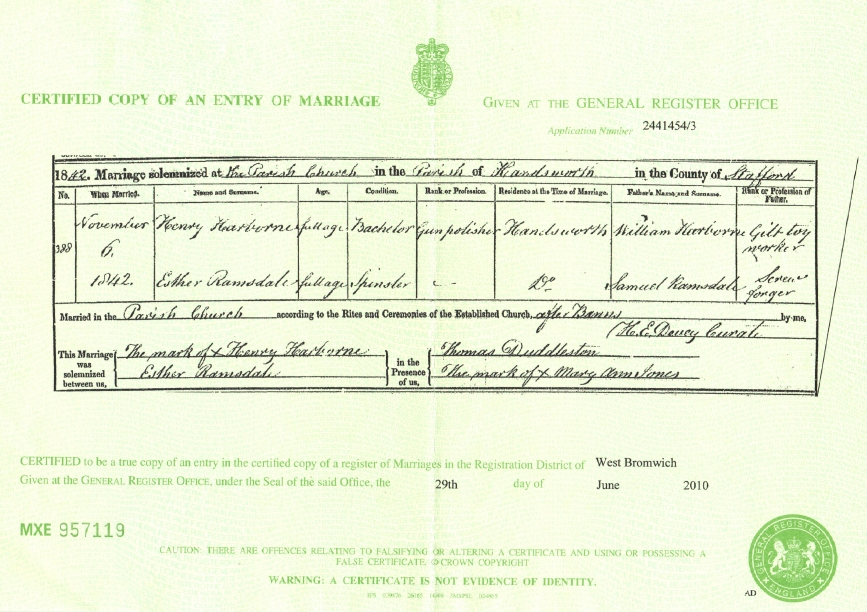 CERTIFIED COPY OF AN ENTRY OF MARRIAGE
GIVEN AT THE GENERAL REGISTER OFFICE
Application Number 2441454/3
1842. Marriage solemnized at the Parish Church in the Parish of Handsworth in the County of Stafford
No. When Married. Name and Surname. Age. Condition. Rank or Profession. Residence at the Time of Marriage. Father's Name and Surname. Rank or Profession of Father.
388 November 6. 1842. Henry Harborne full age Bachelor Gun polisher Handsworth William Harborne Gilt toy worker
Esther Ramsdale full age Spinster - Do Samuel Ramsdale Screw forger
Married in the Parish Church according to the Rites and Ceremonies of the Established Church, after Banns by me,
H.E. Curate
This Marriage was solemnized between us, The mark of x Henry Harborne
Esther Ramsdale
in the Presence of us, Thomas Duddleston
The mark of x Mary Ann Jones
CERTIFIED to be a true copy of an entry in the certified copy of a register of Marriages in the Registration District of West Bromwich
Given at the GENERAL REGISTER OFFICE, under the Seal of the said Office, the 29th day of June 2010
MXE 957119
CAUTION: THERE ARE OFFENCES RELATING TO FALSIFYING OR ALTERING A CERTIFICATE AND USING OR POSSESSING A
FALSE CERTIFICATE. © CROWN COPYRIGHT
WARNING: A CERTIFICATE IS NOT EVIDENCE OF IDENTITY.
GENERAL REGISTER OFFICE
ENGLAND
AD